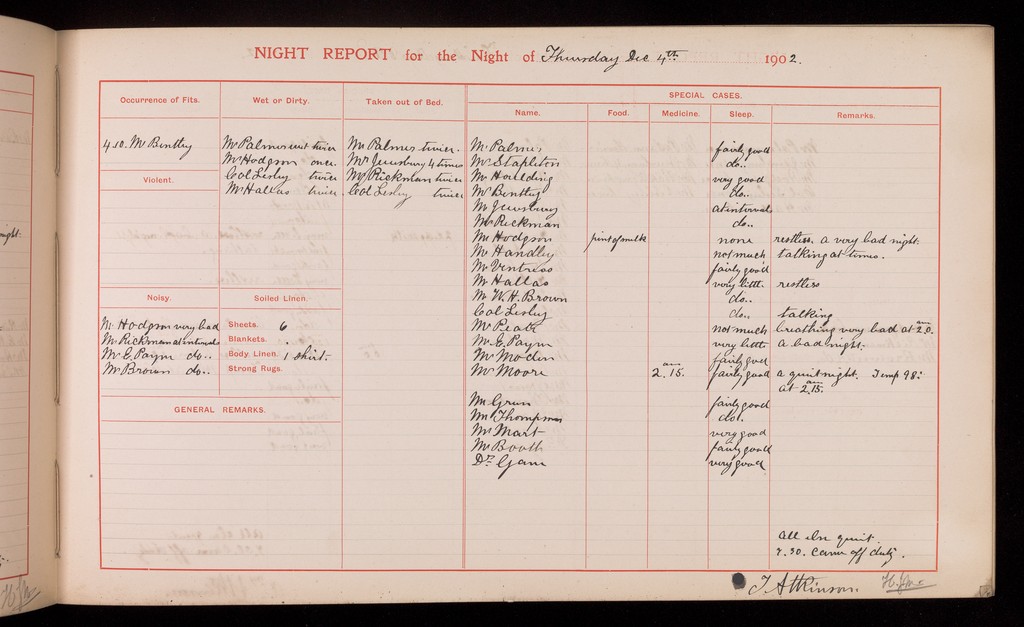 NIGHT REPORT for the Night of Thursday Dec 4th 1902.
Occurrence of Fits.
4.10. Mr Bentley
Violent.
Noisy.
Mr Hodgson very bad
Mr Rickman at intervals
Mr E. Paym do..
Mr Brown do..
Wet or Dirty.
Mr Palmer wet twice
Mr Hodgson once.
Col Lesley twice
Mr Hallas twice
Soiled Linen.
Sheets. 6
Blankets. .
Body Linen. 1 shirt.
Strong Rugs.
GENERAL REMARKS.
Taken out of Bed.
Mr Palmer twice.
Mr Jewsbury 4 times
Mr Rickman twice
Col Lesley twice
SPECIAL CASES.
Name. Food. Medicine. Sleep. Remarks.
Mr Palmer fairly good
Mr Stapleton do..
Mr Houlding very good
Mr Bentley do..
Mr Jewsbury at intervals
Mr Rickman do..
Mr Hodgson pint of milk none restless. a very bad night.
Mr Handley not much talking at times.
Mr Ventress fairly good
Mr Hallas very little restless
Mr W. H. Brown do..
Col Lesley do.. talking
not much breathing very bad at 2.0. am
Mr E. Paym very little a bad night.
Mr fairly good
Mr Moore 2.15. am fairly good a quiet night. Temp 98.
at 2.15. am
Mr fairly good
Mr Thompson do..
Mr Mart very good
Mr Booth fairly good
Dr very good
All else quiet.
7.30. came off duty.
T. Atkinson